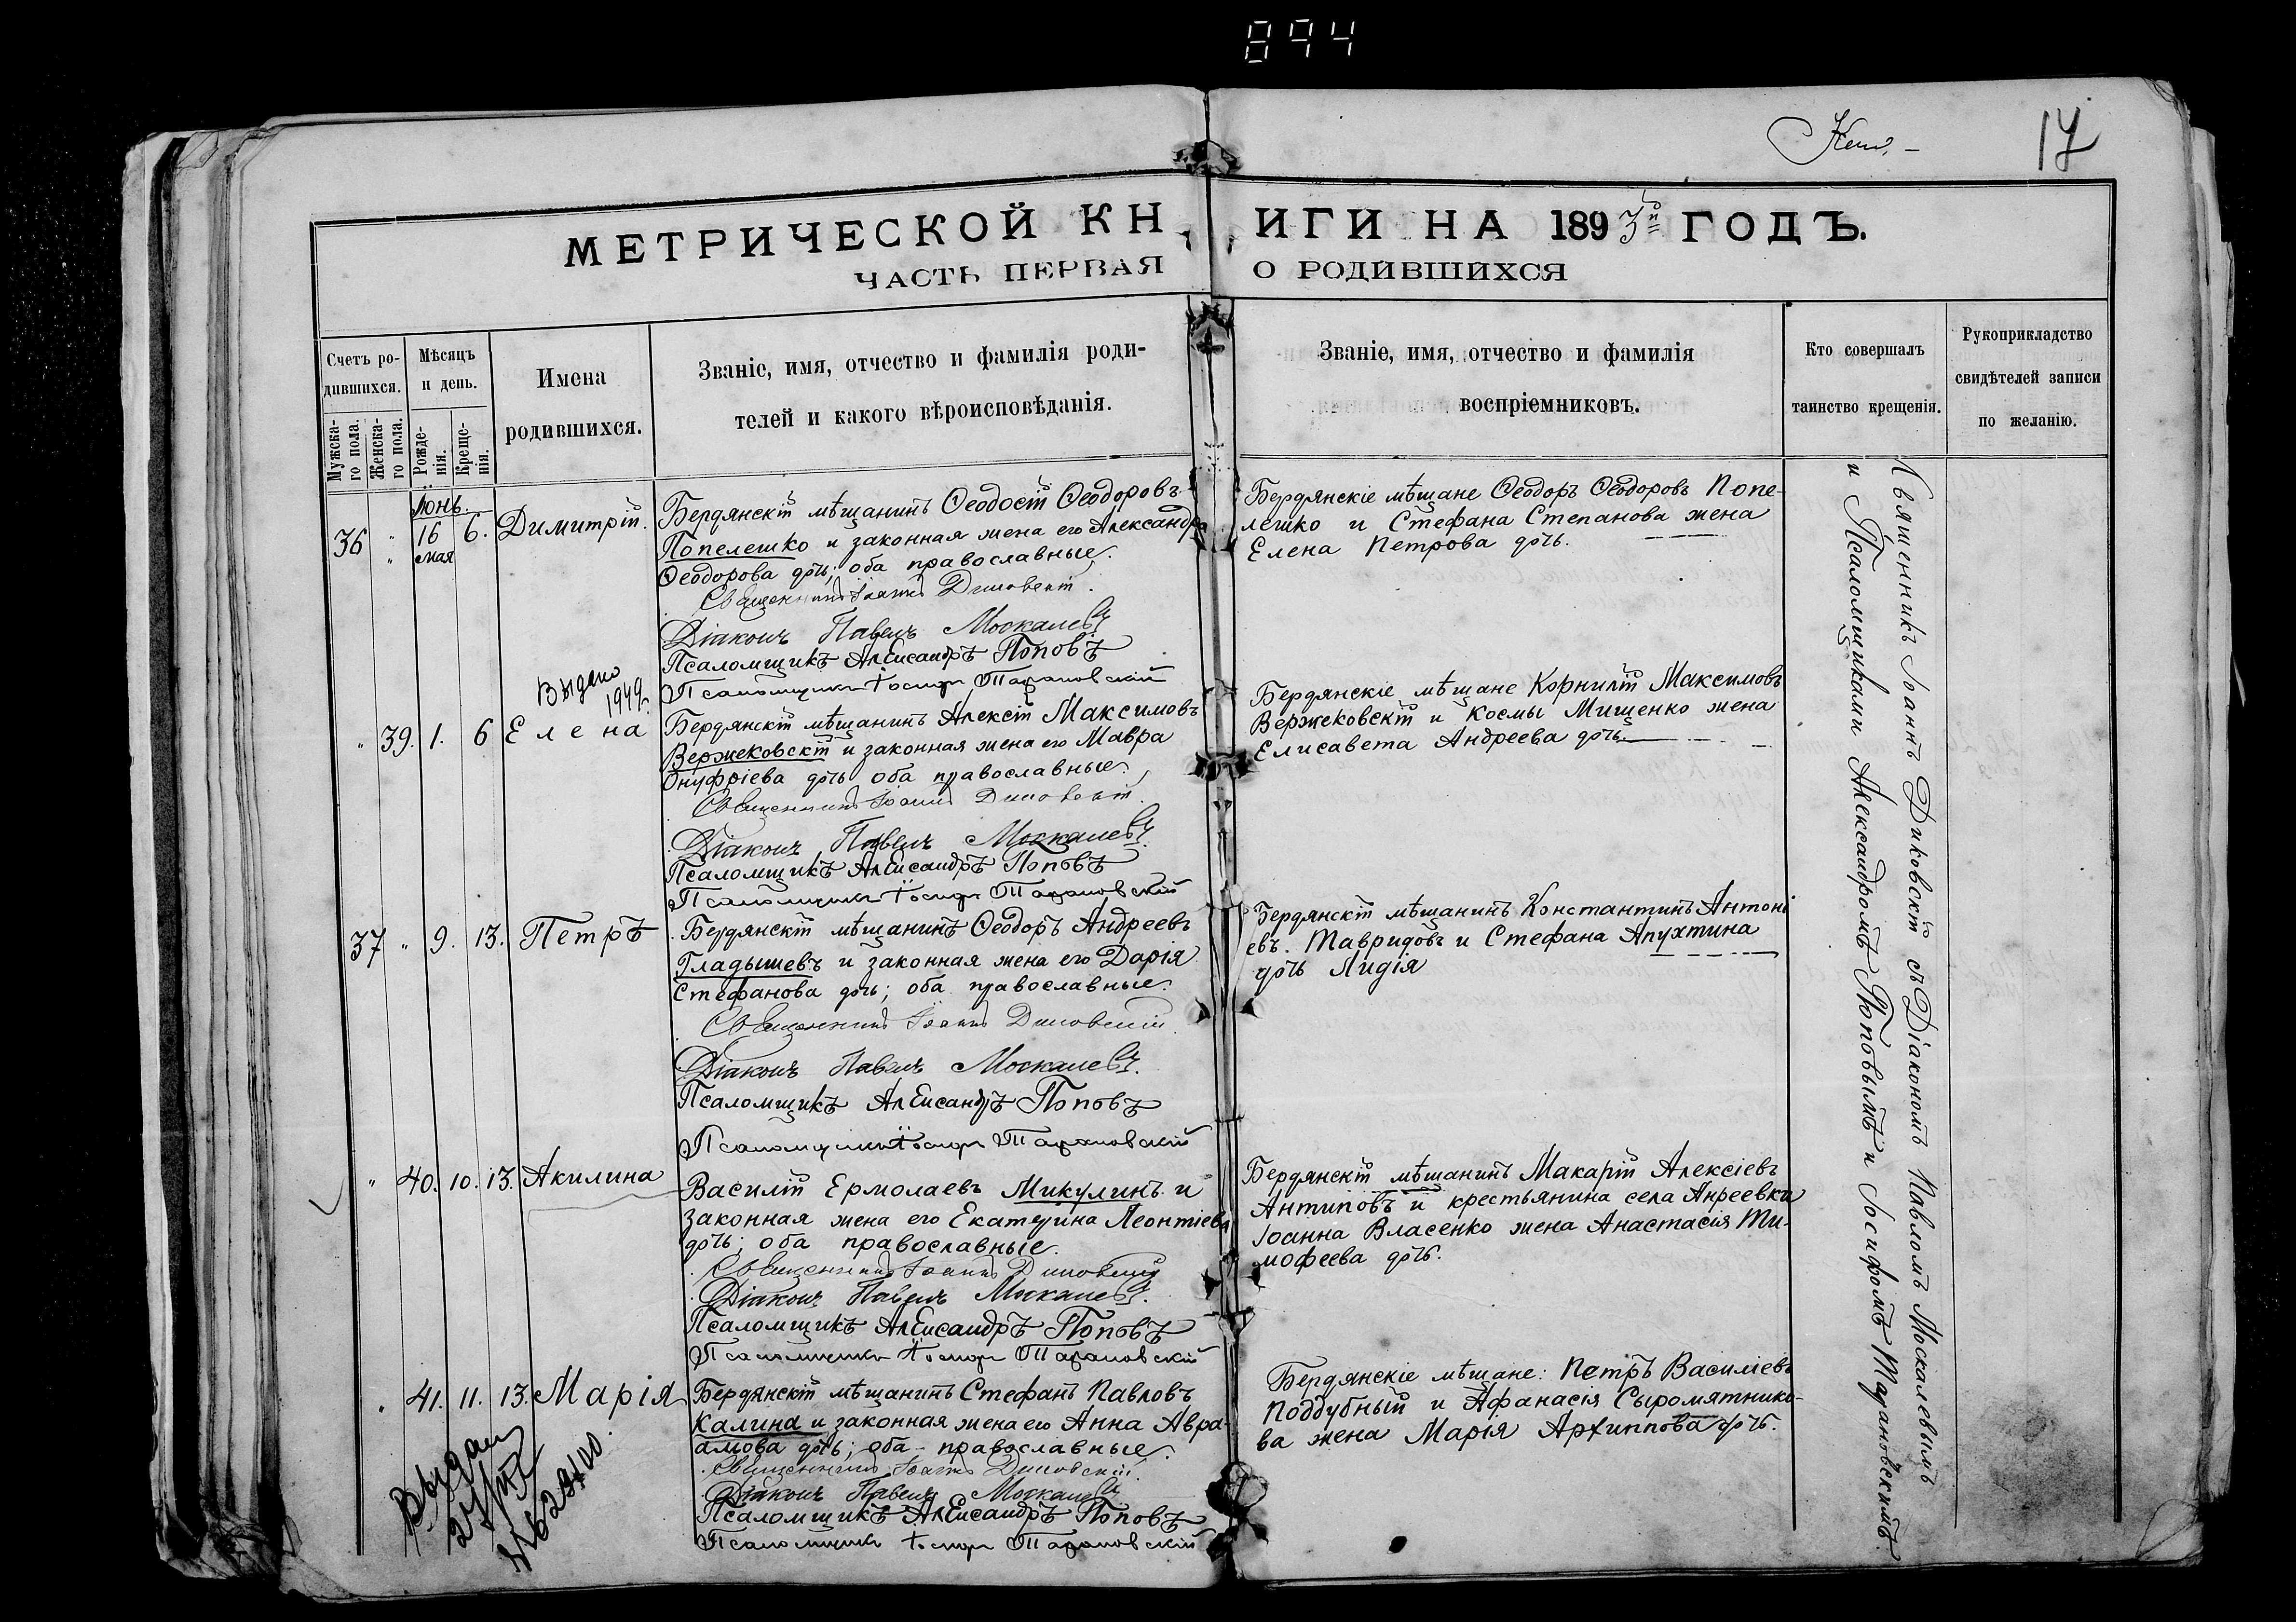 894
17
МЕТРИЧЕСКОЙ КНИГИ НА 1893й ГОДЪ.
ЧАСТЬ ПЕРВАЯ О РОДИВШИХСЯ
Счетъ ро-
дившихся.
Мужска-
го пола.
Женска-
го пола.
Мѣсяцъ
и день.
Рожде-
нія.
Креще-
нія.
Имена
родившихся.
Званіе, имя, отчество и фамилія роди-
телей и какого вѣроисповѣданія.
Званіе, имя, отчество и фамилія
воспріемниковъ.
Кто совершалъ
таинство крещенія.
Рукоприкладство
свидѣтелей записи
по желанію.
Іюнь.
36 " 16 6. Димитрій.
мая
Бердянскій мѣщанинъ Ѳеодосій Ѳеодоровъ
Попелешко и законная жена его Александра
Ѳеодорова дочь; оба православные.
Священникъ Іоаннъ Диковскій.
Діаконъ Павелъ Москалевъ
Псаломщикъ Александръ Поповъ
Псаломщикъ Іосифъ Тарановскій
Бердянскіе мѣщане Ѳеодоръ Ѳеодоровъ Попе-
лешко и Стефана Степанова жена
Елена Петрова дочь.
Выдано
1949
" 39. 1. 6 Елена
Бердянскій мѣщанинъ Алексій Максимовъ
Вержековскій и законная жена его Мавра
Онуфріева дочь оба православные.
Священникъ Іоаннъ Диковскій.
Діаконъ Павелъ Москалевъ.
Псаломщикъ Александръ Поповъ
Псаломщикъ Іосифъ Тарановскій
Бердянскіе мѣщане Корнилій Максимовъ
Вержековскій и Космы Мищенко жена
Елисавета Андреева дочь.
37 " 9. 13. Петръ
Бердянскій мѣщанинъ Ѳеодоръ Андреевъ
Гладышевъ и законная жена его Дарія
Стефанова дочь; оба православные.
Священникъ Іоаннъ Диковскій.
Діаконъ Павелъ Москалевъ.
Псаломщикъ Александръ Поповъ
Псаломщикъ Іосифъ Тарановскій
Бердянскій мѣщанинъ Константинъ Антоні
евъ. Тавридовъ и Стефана Апухтина
дочь Лидія
" 40. 10. 13. Акилина
Василій Ермолаевъ Микулинъ и
законная жена его Екатерина Леонтіева
дочь; оба православные.
Священникъ Іоаннъ Диковскій
Діаконъ Павелъ Москалевъ.
Псаломщикъ Александръ Поповъ
Псаломщикъ Іосифъ Тарановскій
Бердянскій мѣщанинъ Макарій Алексіевъ
Антиповъ и крестьянина села Анреевки
Іоанна Власенко жена Анастасія Ти-
мофеева дочь.
" 41. 11. 13. Марія
Бердянскій мѣщанинъ Стефанъ Павловъ
Калина и законная жена его Анна Авра-
амова дочь; оба православные.
Священникъ Іоаннъ Диковскій.
Діаконъ Павелъ Москалевъ
Псаломщикъ Александръ Поповъ
Псаломщикъ Іосифъ Тарановскій
Бердянскіе мѣщане: Петръ Василіевъ
Поддубный и Афанасія Сыромятнико-
ва жена Марія Архиппова дочь.
Священникъ Іоаннъ Диковскій съ Діакономъ Павломъ Москалевымъ
и Псаломщиками Александромъ Поповымъ и Іосифомъ Тарановскимъ.